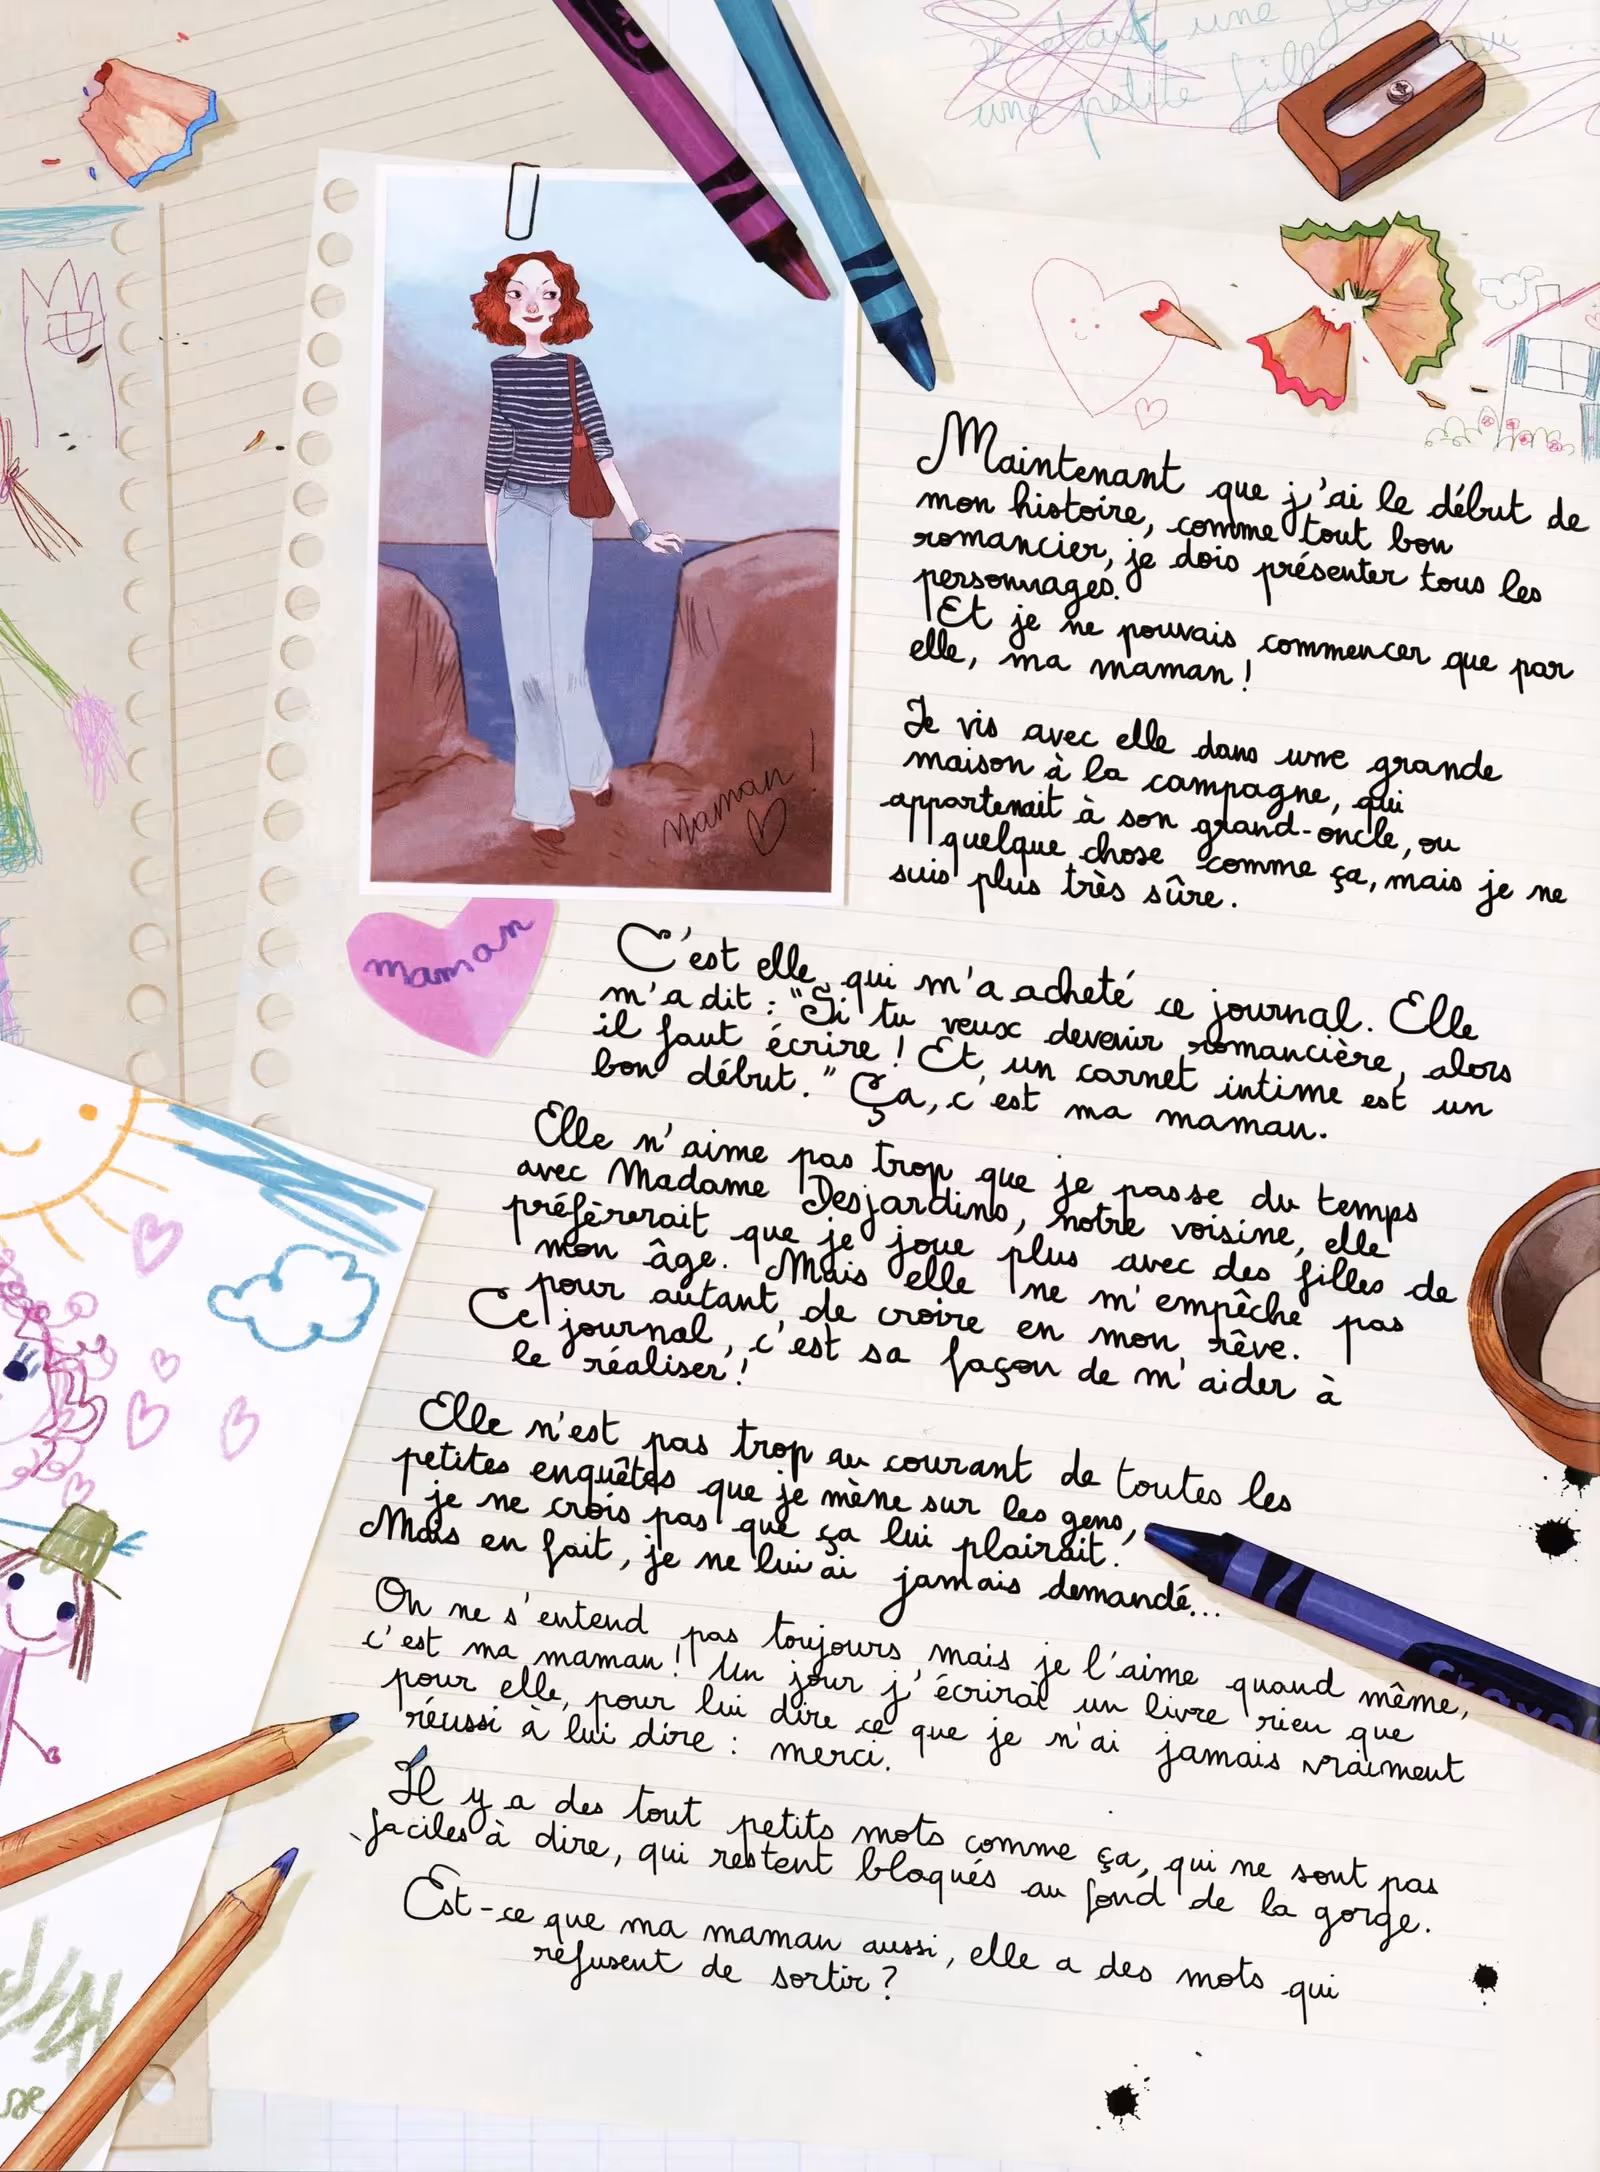 je
une petite
Maman !
maman
Maintenant que j'ai le début de
mon histoire, comme tout bon
romancier, je dois présenter tous les
personnages.
Et je ne pouvais commencer que par
elle, ma maman !
Je vis avec elle dans une grande
maison à la campagne, qui
appartenait à son grand-oncle, ou
quelque chose comme ça, mais je ne
suis plus très sûre.
C'est elle qui m'a acheté ce journal. Elle
m'a dit : "Si tu veux devenir romancière, alors
il faut écrire ! Et un carnet intime est un
bon début." Ça, c'est ma maman.
Elle n'aime pas trop que je passe du temps
avec Madame Desjardins, notre voisine, elle
préfèrerait que je joue plus avec des filles de
mon âge. Mais elle ne m'empêche pas
pour autant, de croire en mon rêve.
Ce journal, c'est sa façon de m'aider à
le réaliser !
Elle n'est pas trop au courant de toutes les
petites enquêtes que je mène sur les gens,
je ne crois pas que ça lui plairait.
Mais en fait, je ne lui ai jamais demandé...
On ne s'entend pas toujours, mais je l'aime quand même,
c'est ma maman ! Un jour j'écrirai un livre rien que
pour elle, pour lui dire ce que je n'ai jamais vraiment
réussi à lui dire : merci.
Il y a des tout petits mots comme ça, qui ne sont pas
faciles à dire, qui restent bloqués au fond de la gorge.
Est-ce que ma maman aussi, elle a des mots qui
refusent de sortir ?